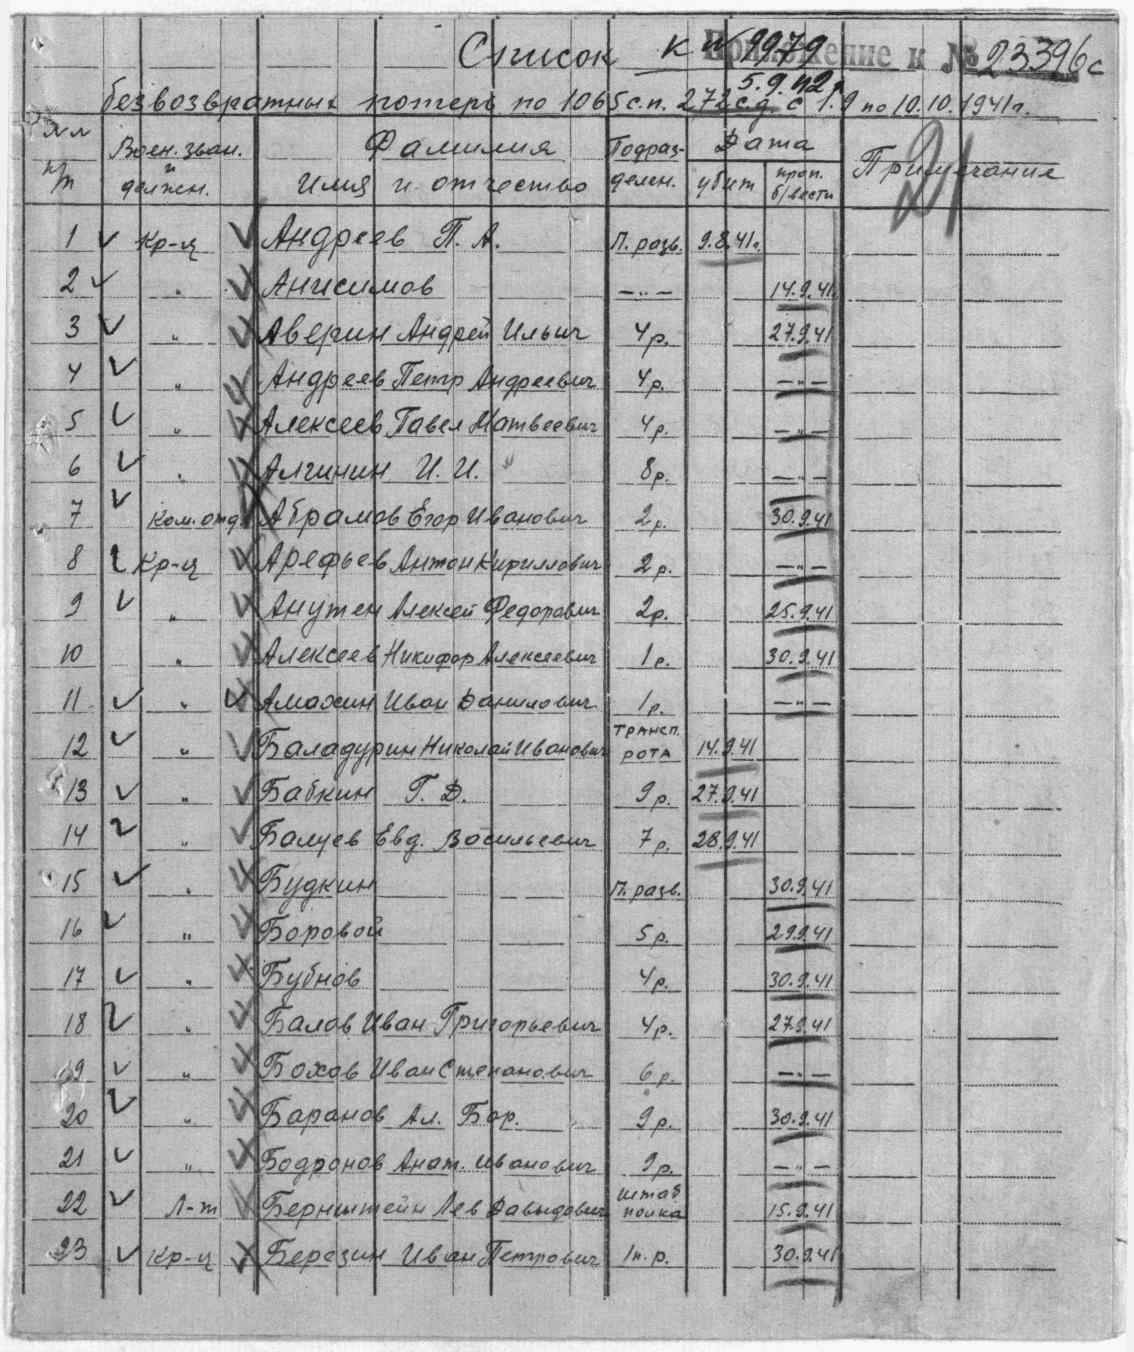 Список к № 9979 Приложение к № 23396с
5.9.42г.
безвозвратных потерь по 1065 с.п. 272 с.д. с 1.9 по 10.10.1941г.
№№ п/п Воен. зван. и должен. Фамилия Имя и отчество Подраз- делен. Дата убит проп. б/вести Примечание
1 Кр-ц Андреев П. А. П. разв. 9.8.41г.
2 " Анисимов —"— 14.9.41
3 " Аверин Андрей Ильич 4р. 27.9.41
4 " Андреев Петр Андреевич 4р. —"—
5 " Алексеев Павел Матвеевич 4р. —"—
6 " Алгинин И. И. 8р. —"—
7 Ком. отд. Абрамов Егор Иванович 2р. 30.9.41
8 Кр-ц Арефьев Антон Кириллович 2р. —"—
9 " Анутен Алексей Федорович 2р. 25.9.41
10 " Алексеев Никифор Алексеевич 1р. 30.9.41
11 " Амахин Иван Данилович 1р. —"—
12 " Баладурин Николай Иванович трансп. рота 14.9.41
13 " Бабкин Г. Д. 9р. 27.9.41
14 " Балуев Евд. Васильевич 7р. 28.9.41
15 " Будкин П. разв. 30.9.41
16 " Боровой 5р. 29.9.41
17 " Бубнов 4р. 30.9.41
18 " Балов Иван Григорьевич 4р. 27.9.41
19 " Бохов Иван Степанович 6р. —"—
20 " Баранов Ал. Бор. 9р. 30.9.41
21 " Бодронов Анат. Иванович 9р. —"—
22 Л-т Бернштейн Лев Давыдович штаб полка 15.9.41
23 Кр-ц Березин Иван Петрович 1п.р. 30.9.41